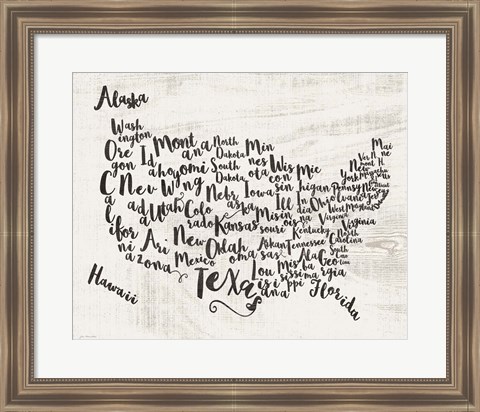 Alaska
Wash
ington
Ore
gon
Id
aho
Mont
ana
North
Dakota
Min
nes
ota
South
Dakota
Wis
con
sin
Mic
higan
Mai
ne
New
York
Wyomi
ng
Nebr
aska
Iowa
Ill
inois
Ind
iana
Ohio
Pennsylvania
C
a
l
ifor
ni
a
Nev
ad
Utah
Colo
rado
Kansas
Missouri
West
Virginia
Virginia
Kentucky
Ari
zona
New
Mexico
Oklah
oma
Arkan
sas
Tennessee
North
Carolina
South
Caro
lina
Texas
Lou
isi
ana
Mis
siss
ippi
Ala
ba
ma
Geo
rgia
Florida
Hawaii